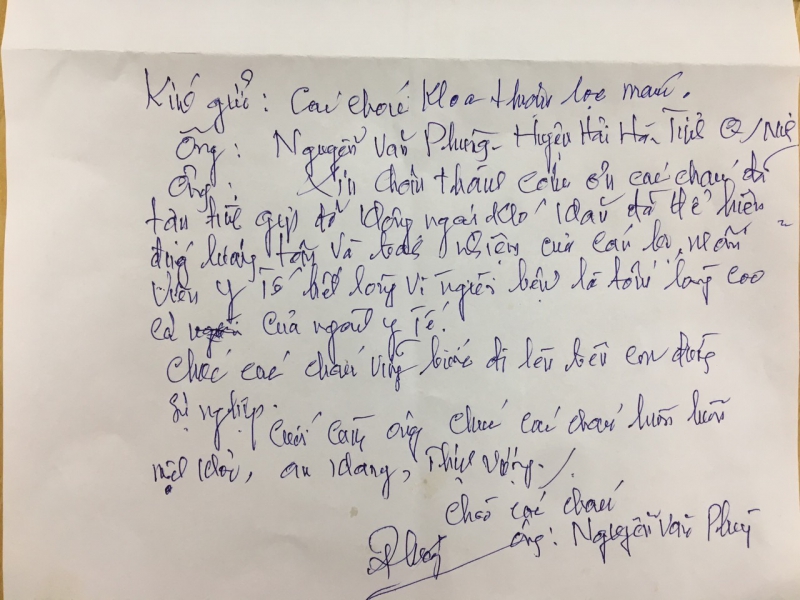 Kính gửi: Các cháu Khoa thận lọc máu.
Ông: Nguyễn Văn Phụng - Huyện Hải Hà, Tỉnh Q/Ninh
Ông: Xin chân thành cảm ơn các cháu đã
tận tình giúp đỡ không ngại khó khăn đã thể hiện
đúng lương tâm và trách nhiệm của cán bộ, nhân
viên y tế hết lòng vì người bệnh là tấm lòng cao
cả của người y tế.
Chúc các cháu vững bước đi lên trên con đường
sự nghiệp.
Cuối cùng ông chúc các cháu luôn luôn
mạnh khỏe, an khang, thịnh vượng./
Chào các cháu
Ông: Nguyễn Văn Phụng